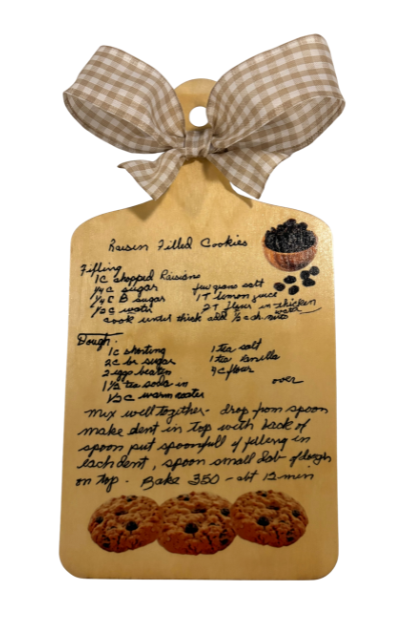 Raisin Filled Cookies
Filling
1C chopped Raisins
1/4 C sugar few grains salt
1/4 C B sugar 1 T lemon juice
1/2 C water 2 T flour
cook until thick add 1/2 c
Dough.
1C shorting 1 tea salt
2C br sugar 1 tea vanilla
2 eggs beaten 4 C flour
1 1/2 tea soda in over
1/2 C warm water
mix well together - drop from spoon
make dent in top with back of
spoon put spoonfull of filling in
each dent, spoon small dab of dough
on top. Bake 350 - abt 12 min